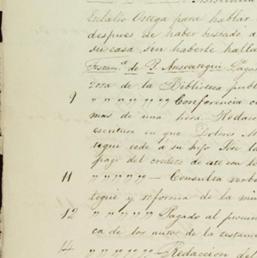 Eulalio Ortega para hablar
despues de haber buscado a
su casa sin haberle halla
de la Biblioteca publ
9 " " " " " " Conferencia c
mas de una hora. Redac
escritura en que Dolores M
tegui cede a su hijo
pago del credito de
11 " " " " " — Consulta verba
tegui y reforma de la mi
12 " " " " " Pagado al procu
ca de los autos de la testam
14 " " " " " — Redaccion del